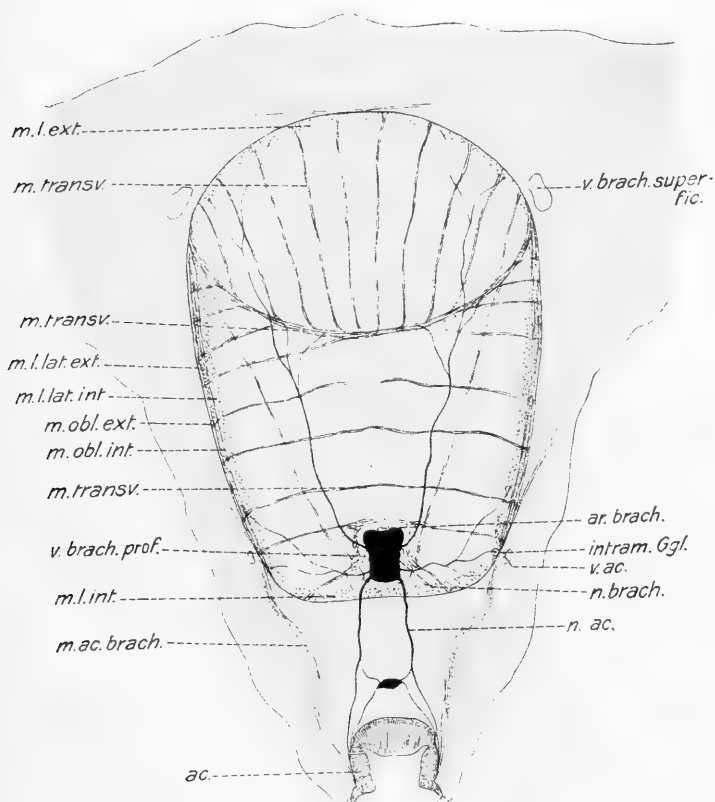 m.l.ext.
m.transv.
m.transv.
m.l.lat.ext.
m.l.lat.int
m.obl.ext.
m.obl.int.
m.transv.
v.brach.prof.
m.l.int.
m.ac.brach.
ac.
v.brach.super-
fic.
ar.brach.
intram.Ggl.
v.ac.
n.brach.
n.ac.